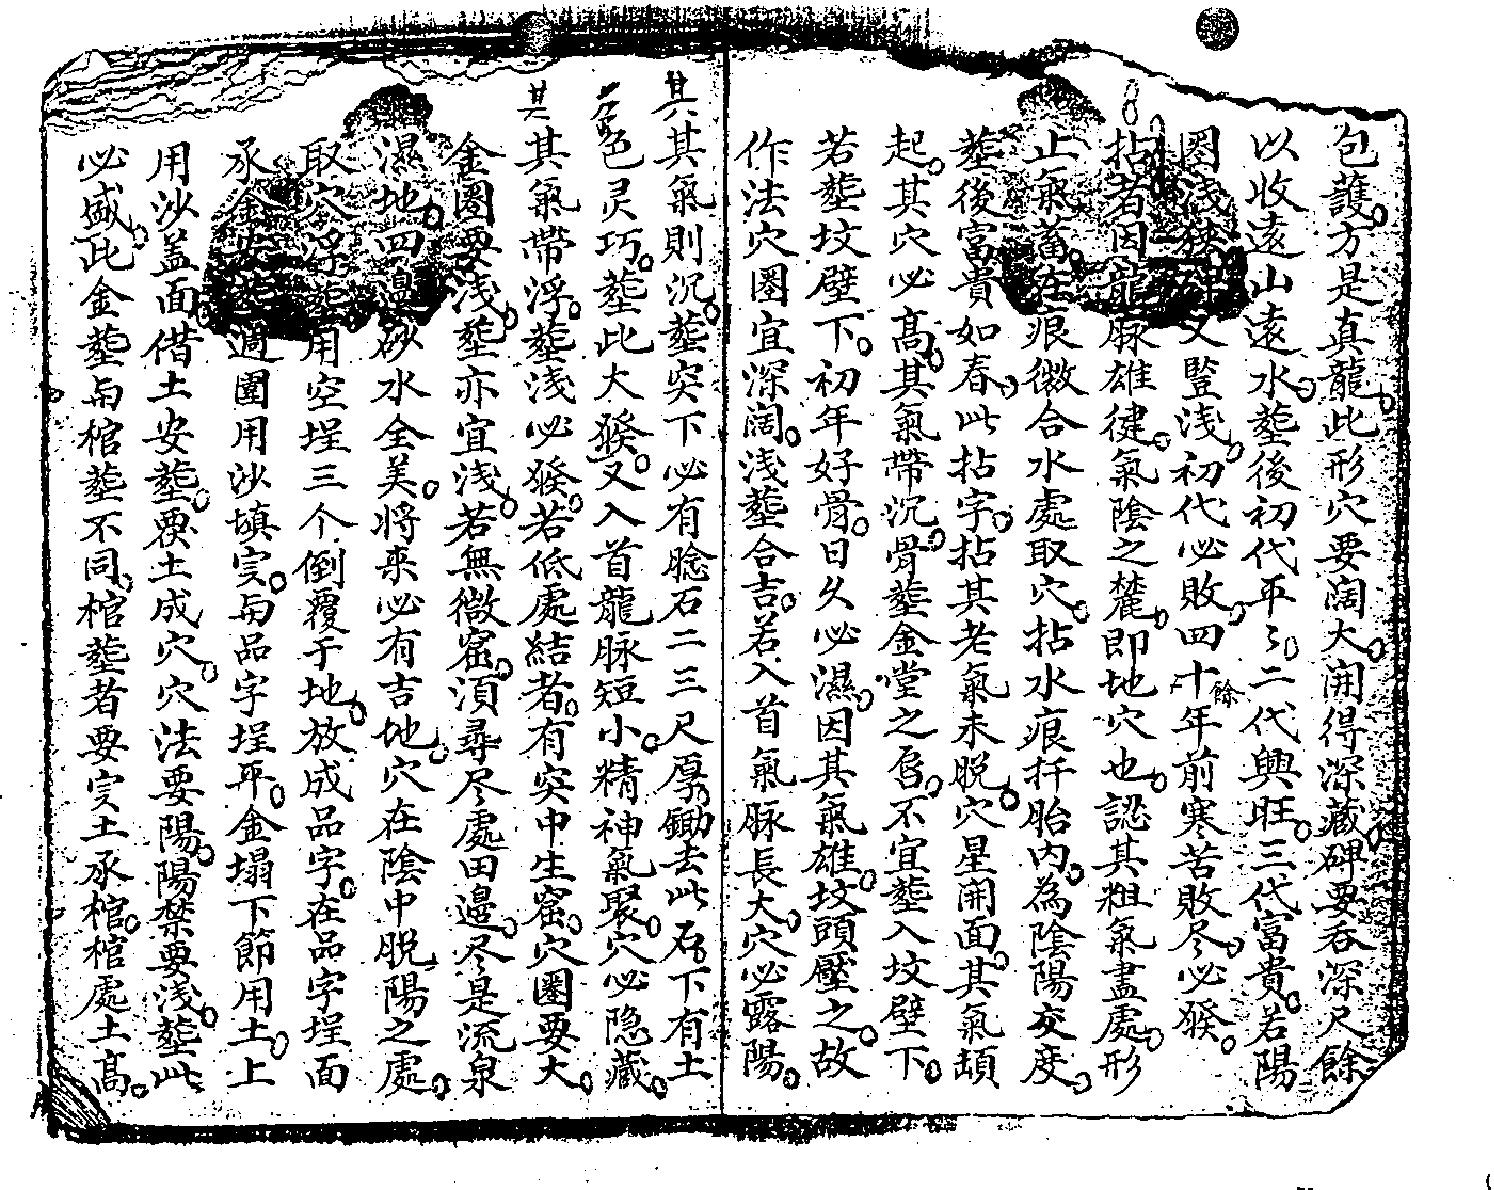 包護方是真龍此形穴要濶大開得深藏碑要吞深尺餘
以收遠山遠水塟後初代平々二代興旺三代富貴若陽
圈浅 又豎浅初代必敗四十餘年前寒苦敗尽必發
拈者因龍脉雄健氣陰之麓即地穴也認其粗氣盡處形
止氣蓄在痕微合水處取穴拈水痕扦胎内為陰陽交度
塟後富貴如春此拈字拈其老氣未脫穴星開面其氣頡
起其穴必高其氣帶沉骨塟金堂之唇不宜塟入坟壁下
若塟坟壁下初年好骨日久必濕因其氣雄坟頭壓之故
作法穴圈宜深濶浅塟合吉若入首氣脉長大穴必露陽
其其氣則沉塟突下必有腍石二三尺厚鋤去此石下有土
色灵巧塟此大發又入首龍脉短小精神氣聚穴必隐藏
其其氣帶浮塟浅必發若低處結者有突中生窟穴圈要大
金圈要浅塟亦宜浅若無微窟湏尋尽處田邉尽是流泉
濕地四邉砂水全美將来必有吉地穴在陰中脫陽之處
取穴浮塟用空埕三个倒覆于地放成品字在品字埕面
承金安 週圍用沙填实与品字埕平金塌下節用土上
用沙盖面借土安塟要土成穴穴法要陽陽禁要浅塟此
必盛此金塟与棺塟不同棺塟者要实土承棺棺處土高